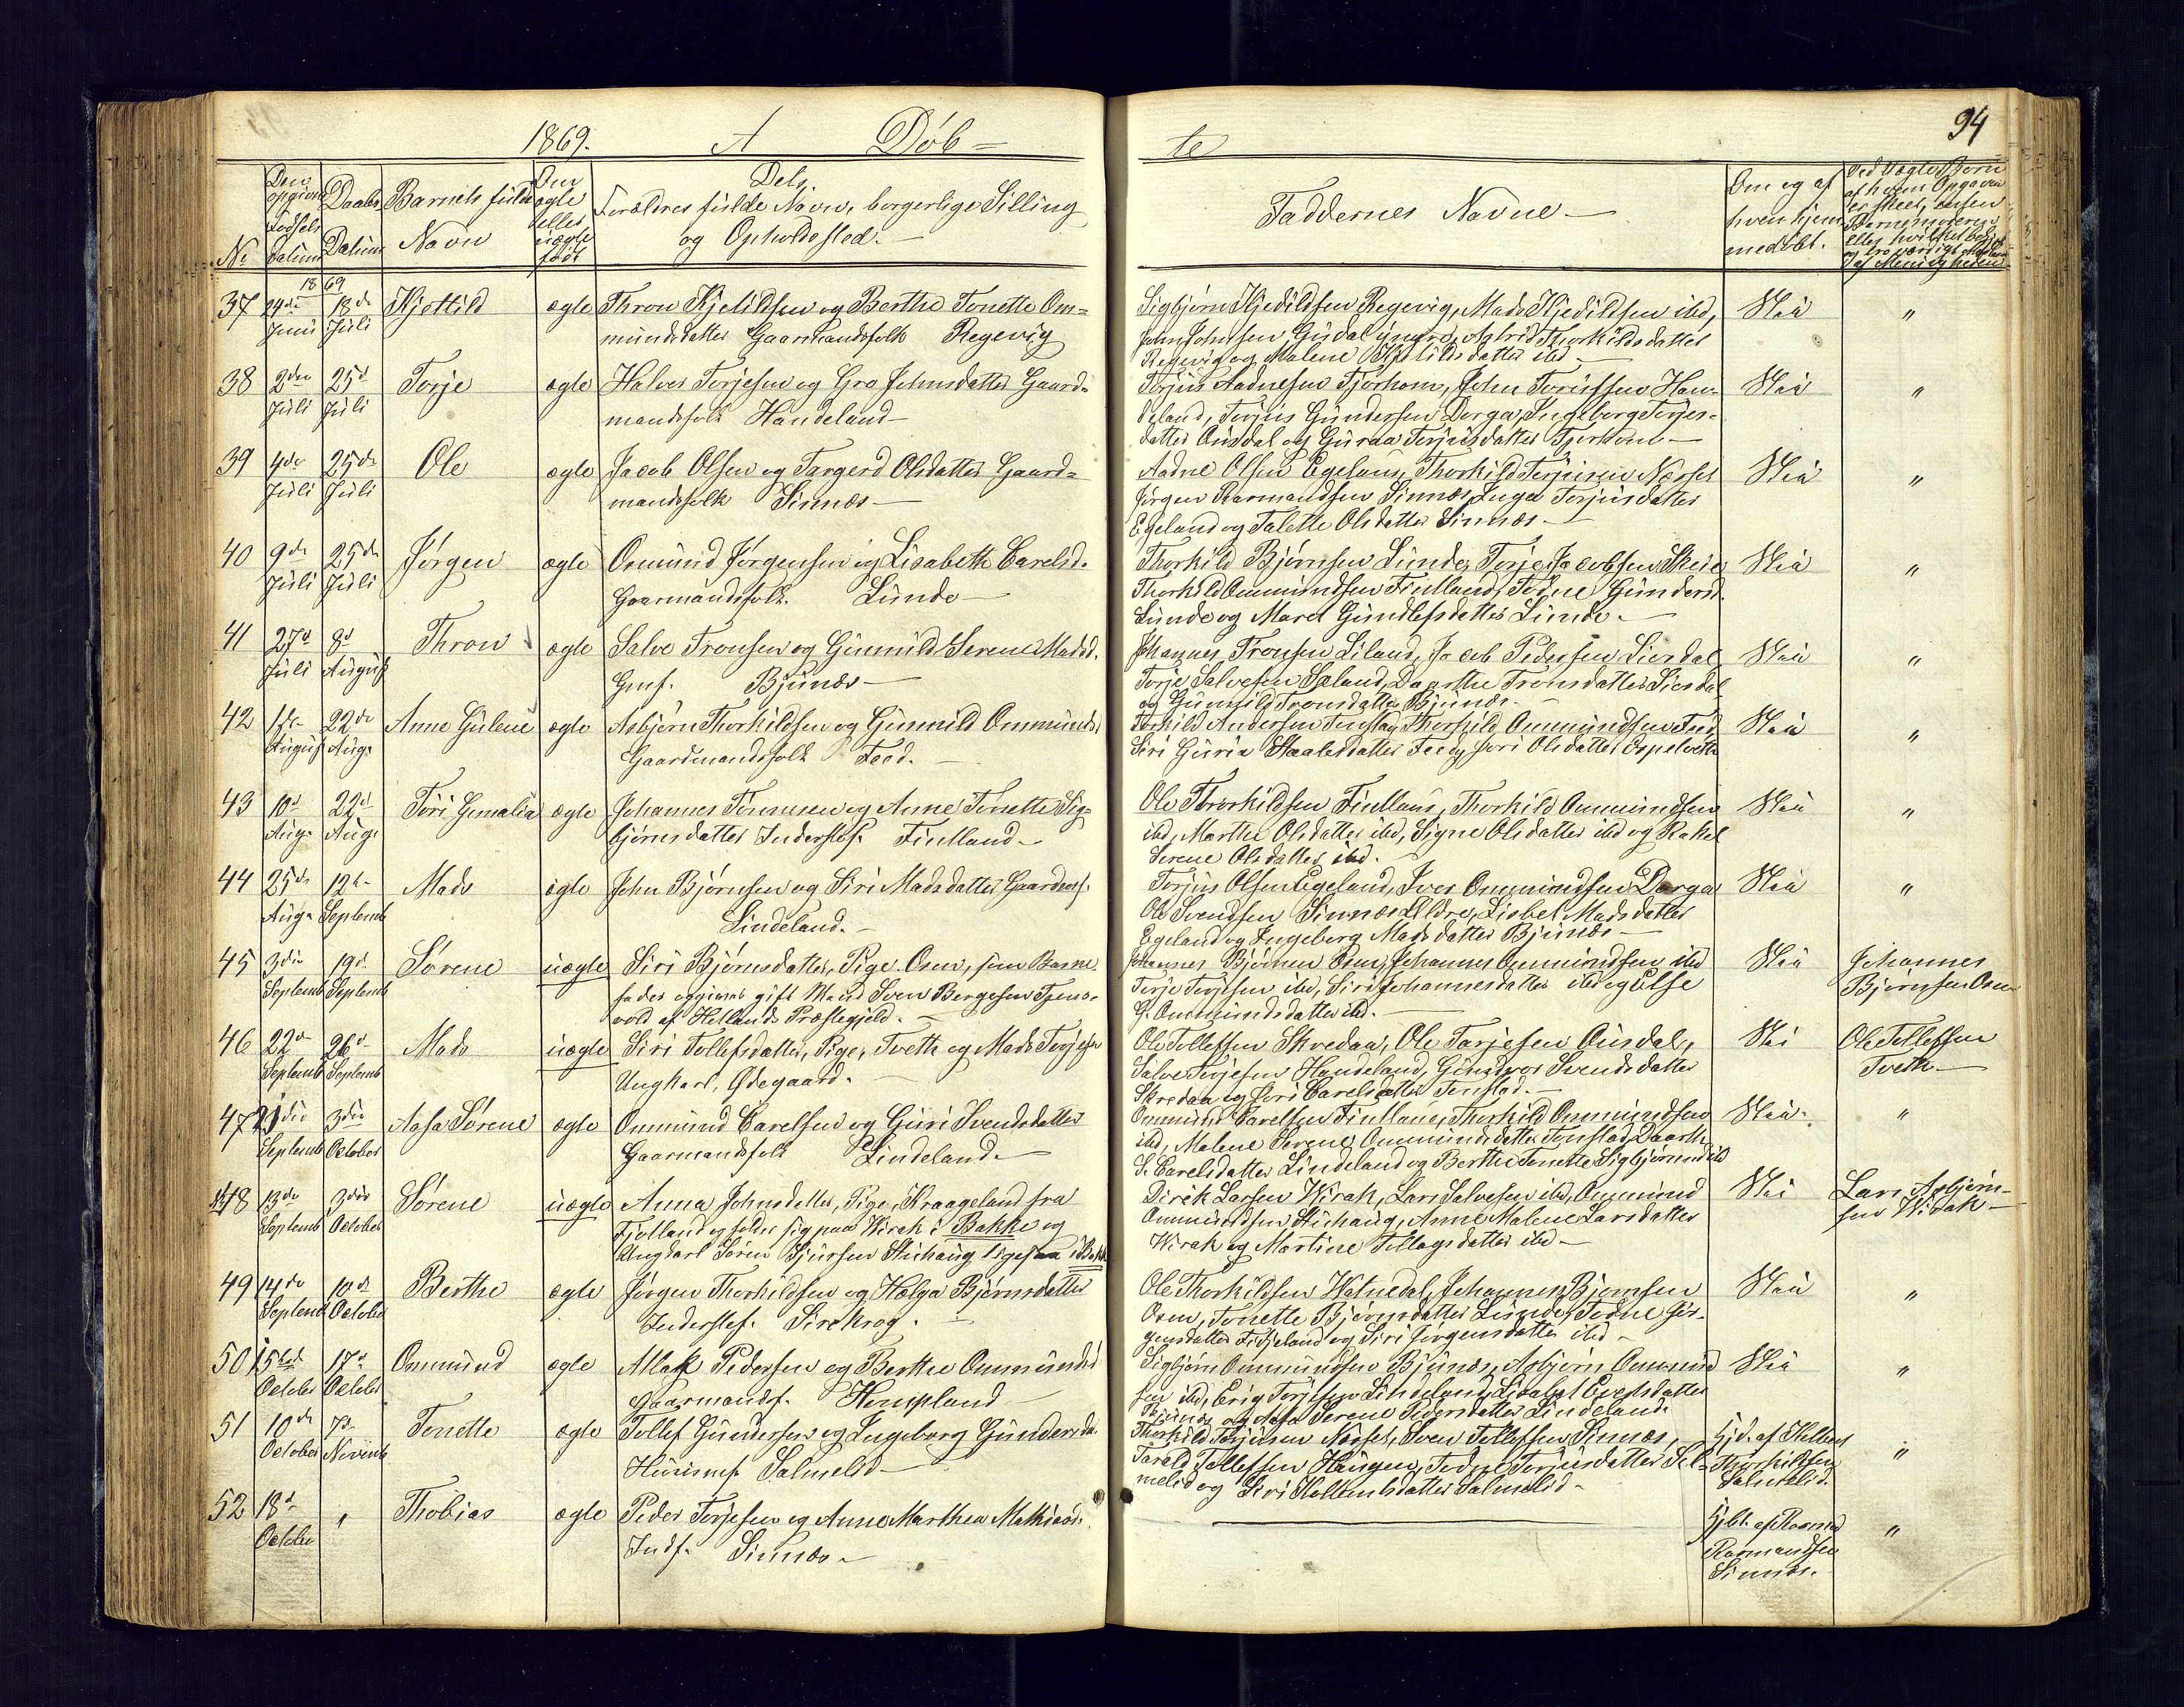 1869. A Døb=
te
94
No
Den opgivne Fødsels Datum
Daabs Datum
Barnets fulde Navn
Om ægte eller uægte født
Dets Forældres fulde Navn, borgerlige Stilling og Opholdssted.
Faddernes Navne
Om og af hvem hjemmedøbt.
1869
37 24de Juni 18de Juli Kjettild ægte Thron Kjetildsen og Berthe Tonette Om=
mundsdatter Gaarmandsfolk Regevig
Sigbjørn Kjedildsen Regevig, Mads Kjedildsen ibd,
Astrid Thorkildsdatter
Regevig og Malene Kjetildsdatter ibd
"
38 2den Juli 25d Juli Torje ægte Halvor Torjesen og Gro Johnsdatter Gaard=
mandsfolk Handeland
Torjus Aadnesen Fjorhom, John Han=
deland, Torjus Gundersen Dorga, Ingeborg Torjes=
datter Ousdal og Guraa Torjusdatter
"
39 4de Juli 25de Juli Ole ægte Jacob Olsen og Targerd Olsdatter Gaard=
mandsfolk Sinnæs
Aadne Olsen Egeland, Thorkild Torjusen Næsset
Jørgen Rasmundsen Sinnæs, Inga Torjusdatter
Egeland og Talette Olsdatter Sinnæs
"
40 9de Juli 25de Juli Jørgen ægte Omund Jørgensen og Lisabeth Carelsd.
Gaarmandsfolk. Lunde
Thorkild Bjørnsen Lunde, Torje Jacobsen
Thorkild Ommundsen Fintland, Tone Gundersd.
Lunde og Maret Gundlefsdatter Lunde.
"
41 27d Juli 8d August Thron ægte Salve Tronsen og Gunnild Serene Madsd.
Gmf. Bjunæs
Johannes Tronsen Liland, Jacob Pedersen Lisrdal
Torje Salvesen Daarthe Tronsdatter
og Gunnild Tronsdatter Bjunæs.
"
42 1ste August 22de Aug. Anne Gulene ægte Asbjørn Thorkildsen og Gunnild Ommunds.
Gaardmandsfolk Feed.
Torkild Andersen Thorkild Ommundsen Feed
Siri Guria Staalesdatter Fee og Olsdatter Espelvetta
"
43 10d Aug. 22d Aug. Tori Gemalia ægte Johannes Tønnesen og Anne Tonette Sig=
bjørnsdatter Inderstef. Fintland
Ole Thorkildsen Fintland, Thorkild Ommundsen
ibd, Marthe Olsdatter ibd, Signe Olsdatter ibd og Rakel
Serene Olsdatter ibd.
"
44 25de Aug. 12te Septemb Mads ægte John Bjørnsen og Siri Madsdatter Gaardmf.
Lindeland.
Torjus Olsen Egeland, Iver Ommundsen Dorga
Ole Svendsen Sinnæs Ældre, Lisbet Madsdatter
Egeland og Ingeborg Madsdatter Bjunæs
"
45 3die Septemb 19d Septemb Sørene uægte Siri Bjørnsdatter, Pige Osen, som Barne
fader opgivet gift Mand Sven Bergesen
af Hellands Præstegjeld.
Johannes Bjørnsen Osen, Johannes Ommundsen ibd
Torje Torjesen ibd, Siri Johannesdatter ibd og Else
G. Ommundsdatter ibd.
Johannes
Bjørnsen Osen
46 22d Septemb 26d Septemb Mads uægte Siri Tollefsdatter, Pige, Tveth og Mads Torjesen
Ungkarl, Ødegaard.
Ole Tollefsen Skredaa, Ole Tarjesen Ousdal,
Salve Torjesen Handeland, Gundvor Svendsdatter
Skredaa og Carelsdatter Tonstad.
Ole Tollefsen
Tveth
47 21die Septemb 3die October Aasa Sørene ægte Ommund Carelsen og Guri Svendsdatter
Gaarmandsfolk Lindeland.
Ommund Carelsen Fintland, Thorkild Ommundsen
ibd, Malene Serene Ommundsdatter Tonstad, Daarthe
S. Carelsdatter Lindeland og Berthe Tonette Sigbjørnsd ibd
"
48 13de Septemb 3die October Sørene uægte Anna Johnsdatter, Pige, Kraageland fra
Fjotland og holder sig paa Wirak i Bakke og
Ungkarl Søren Sjursen Stuhaug ligesaa i Bakke
Dirik Larsen Wirak, Lars Salvesen ibd, Ommund
Ommundsen Stuhaug, Anne Malene Larsdatter
Wirak og Martine Tollagsdatter ibd
Lars Asbjørn=
sen Wirak
49 14de Septemb 10de October Berthe ægte Jørgen Thorkildsen og Hælga Bjørnsdatter
Inderstef. Sirekrog.
Ole Thorkildsen Watnedal, Johannes Bjørnsen
Osen, Tonette Bjørnsdatter Lunde, Todne Jør=
gensdatter Fidjeland og Siri Jørgensdatter ibd
"
50 15de October 17d October Ommund ægte Atlak Pedersen og Berthe Ommundsd
Gaarmandsf. Hompland
Sigbjørn Ommundsen Bjunæs, Asbjørn Ommund
sen ibd, Erig Torjesen Lindeland, Lisabet
Bjunæs og Aasa Serene Pedersdatter Lindeland.
"
51 10de October 7d Novemb Tonette ægte Tollef Gundersen og Ingeborg Gundersda.
Huusmf. Salmelid
Thorkild Torjusen Næsset, Sven Tollefsen Sinnæs,
Tarald Tollefsen Haugen, Todne Torjusdatter Sal=
melid og Siri Kittensdatter Salmelid
Hjd. af
Thorkildsen
Salmelid.
"
52 18d October " Thobias ægte Peder Torjesen og Anne Marthea Mathiasd.
Indf. Sinnæs
Hjbt. af Rasmund
Rasmundsen
Sinnæs.
"